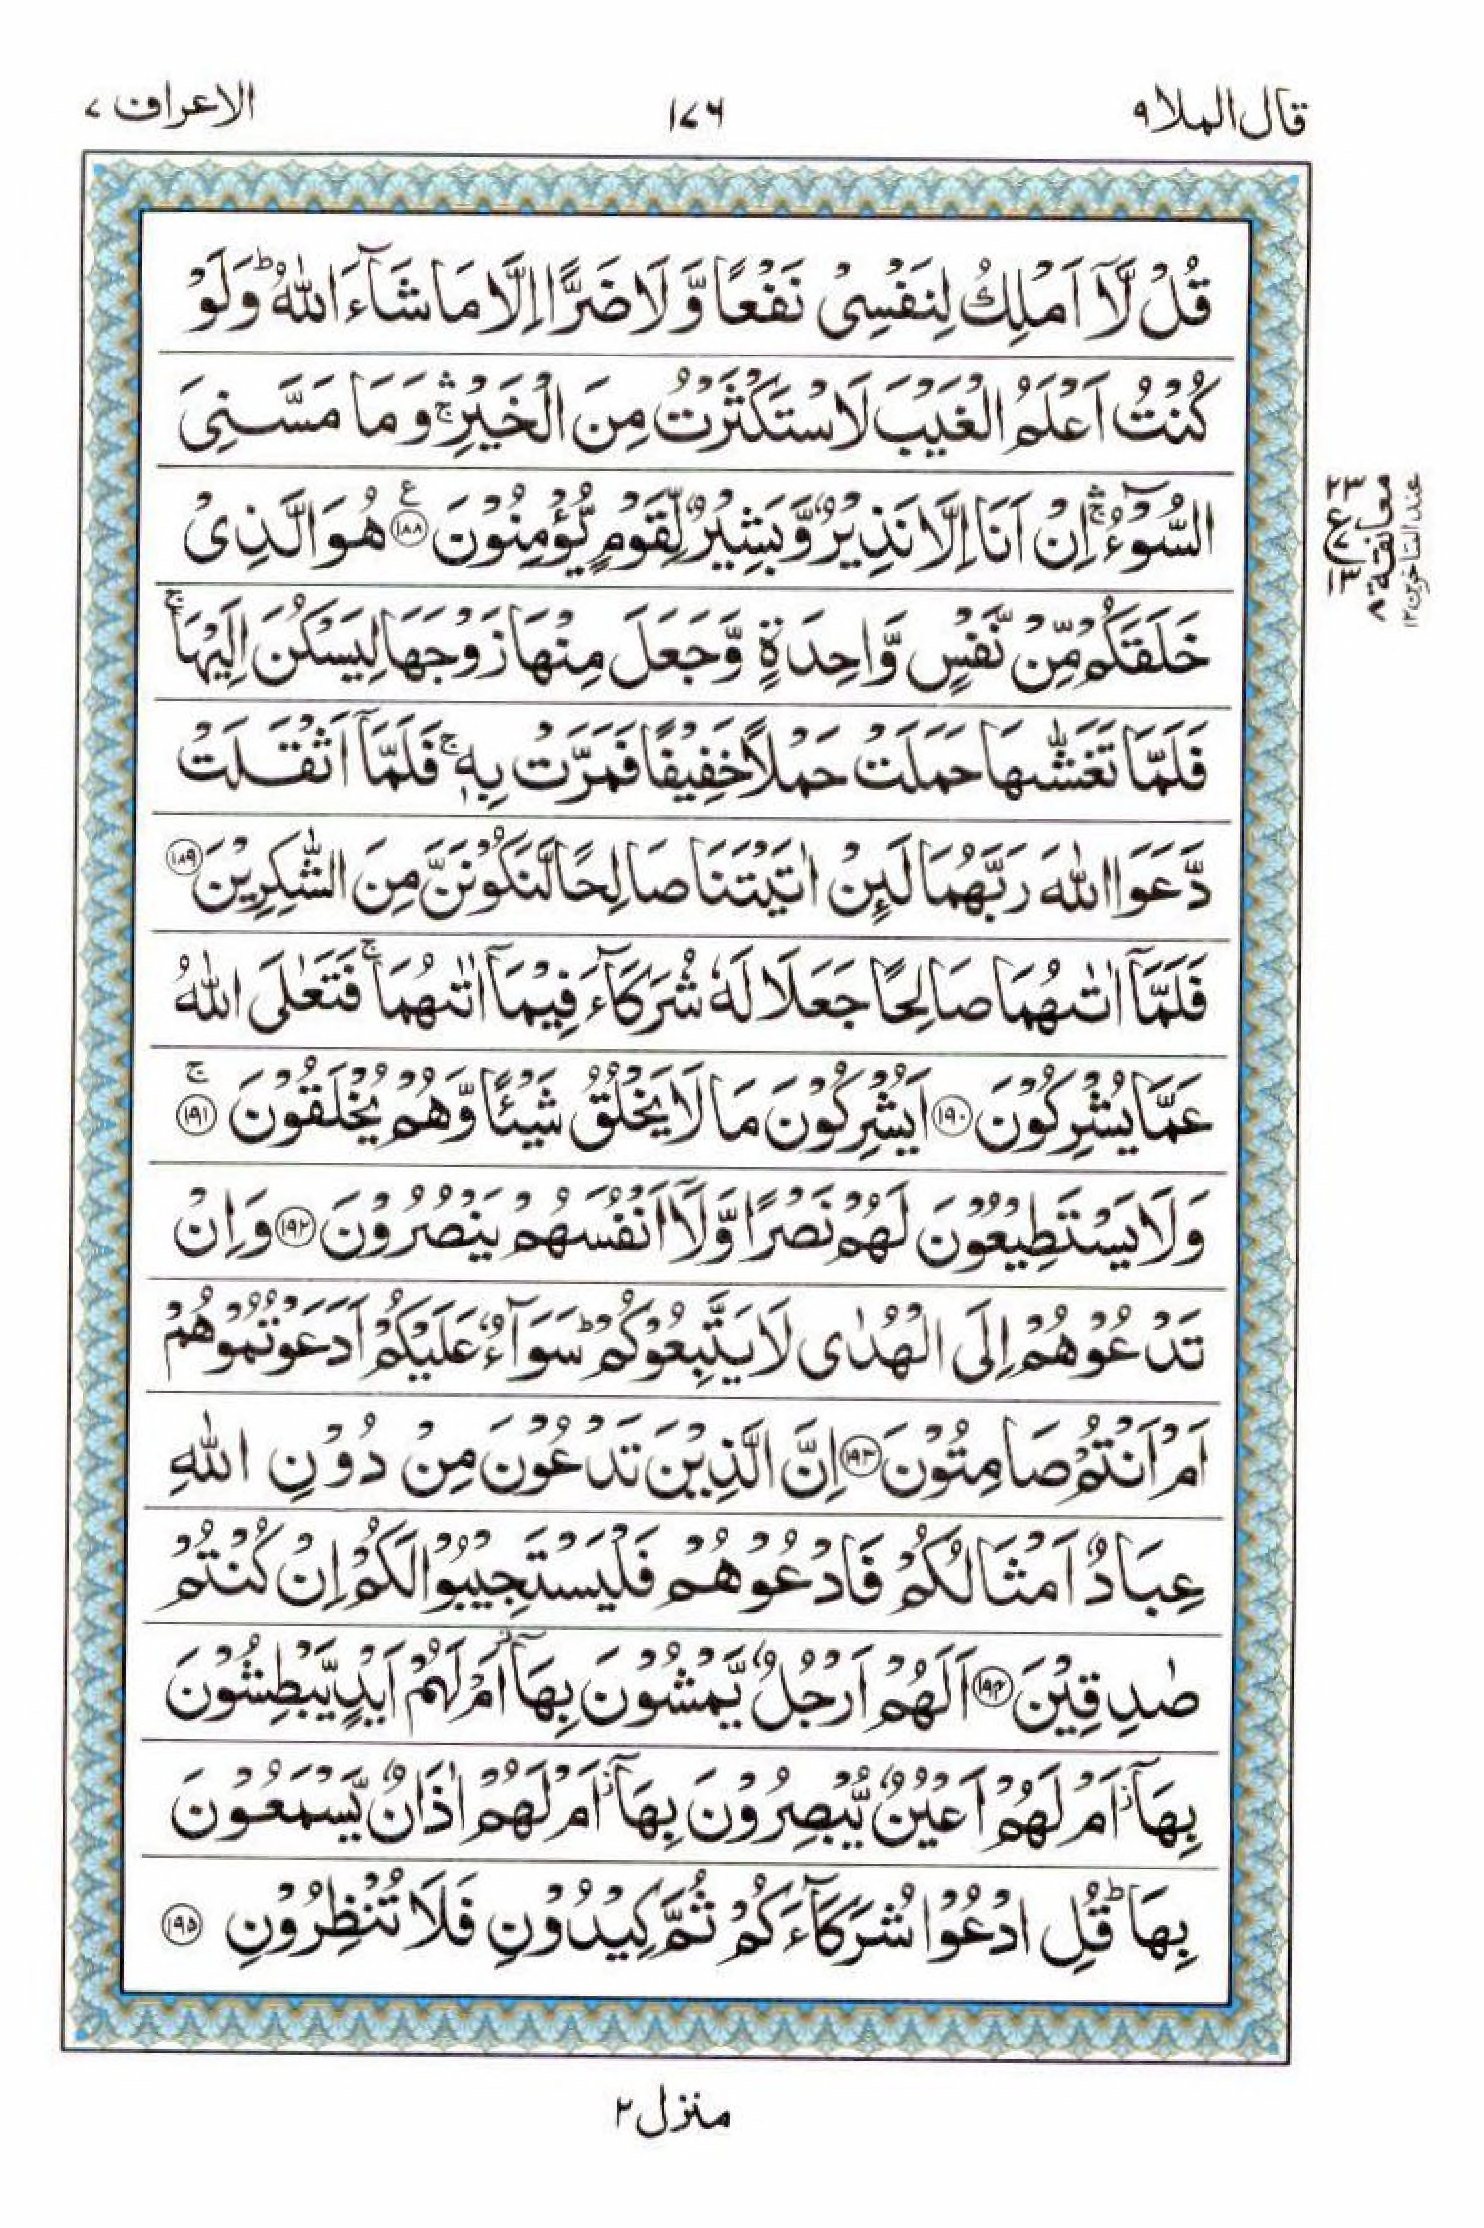 قال الملا ٩
١٧٦
الاعراف ٧
قُلْ لَّاۤ اَمْلِكُ لِنَفْسِیْ نَفْعًا وَّلَا ضَرًّا اِلَّا مَا شَآءَ اللّٰهُ ؕ وَلَوْ
كُنْتُ اَعْلَمُ الْغَیْبَ لَاسْتَكْثَرْتُ مِنَ الْخَیْرِ ۛۚ وَمَا مَسَّنِیَ
السُّوْٓءُ ۛۚ اِنْ اَنَا اِلَّا نَذِیْرٌ وَّبَشِیْرٌ لِّقَوْمٍ یُّؤْمِنُوْنَ ﴿۱۸۸﴾ ع هُوَ الَّذِیْ
خَلَقَكُمْ مِّنْ نَّفْسٍ وَّاحِدَةٍ وَّجَعَلَ مِنْهَا زَوْجَهَا لِیَسْكُنَ اِلَیْهَا ۚ
فَلَمَّا تَغَشّٰىهَا حَمَلَتْ حَمْلًا خَفِیْفًا فَمَرَّتْ بِهٖ ۚ فَلَمَّاۤ اَثْقَلَتْ
دَّعَوَا اللّٰهَ رَبَّهُمَا لَىِٕنْ اٰتَیْتَنَا صَالِحًا لَّنَكُوْنَنَّ مِنَ الشّٰكِرِیْنَ ﴿۱۸۹﴾
فَلَمَّاۤ اٰتٰىهُمَا صَالِحًا جَعَلَا لَهٗ شُرَكَآءَ فِیْمَاۤ اٰتٰىهُمَا ۚ فَتَعٰلَی اللّٰهُ
عَمَّا یُشْرِكُوْنَ ﴿۱۹۰﴾ اَیُشْرِكُوْنَ مَا لَا یَخْلُقُ شَیْئًا وَّهُمْ یُخْلَقُوْنَ ﴿۱۹۱﴾ ۚ
وَلَا یَسْتَطِیْعُوْنَ لَهُمْ نَصْرًا وَّلَاۤ اَنْفُسَهُمْ یَنْصُرُوْنَ ﴿۱۹۲﴾ وَاِنْ
تَدْعُوْهُمْ اِلَی الْهُدٰی لَا یَتَّبِعُوْكُمْ ؕ سَوَآءٌ عَلَیْكُمْ اَدَعَوْتُمُوْهُمْ
اَمْ اَنْتُمْ صَامِتُوْنَ ﴿۱۹۳﴾ اِنَّ الَّذِیْنَ تَدْعُوْنَ مِنْ دُوْنِ اللّٰهِ
عِبَادٌ اَمْثَالُكُمْ فَادْعُوْهُمْ فَلْیَسْتَجِیْبُوْا لَكُمْ اِنْ كُنْتُمْ
صٰدِقِیْنَ ﴿۱۹۴﴾ اَلَهُمْ اَرْجُلٌ یَّمْشُوْنَ بِهَاۤ ؗ اَمْ لَهُمْ اَیْدٍ یَّبْطِشُوْنَ
بِهَاۤ ؗ اَمْ لَهُمْ اَعْیُنٌ یُّبْصِرُوْنَ بِهَاۤ ؗ اَمْ لَهُمْ اٰذَانٌ یَّسْمَعُوْنَ
بِهَا ؕ قُلِ ادْعُوْا شُرَكَآءَكُمْ ثُمَّ كِیْدُوْنِ فَلَا تُنْظِرُوْنِ ﴿۱۹۵﴾
٢٣
ع
٧
١٣
معانقة ٨
عند المتاخرين ١٢
منزل ٢